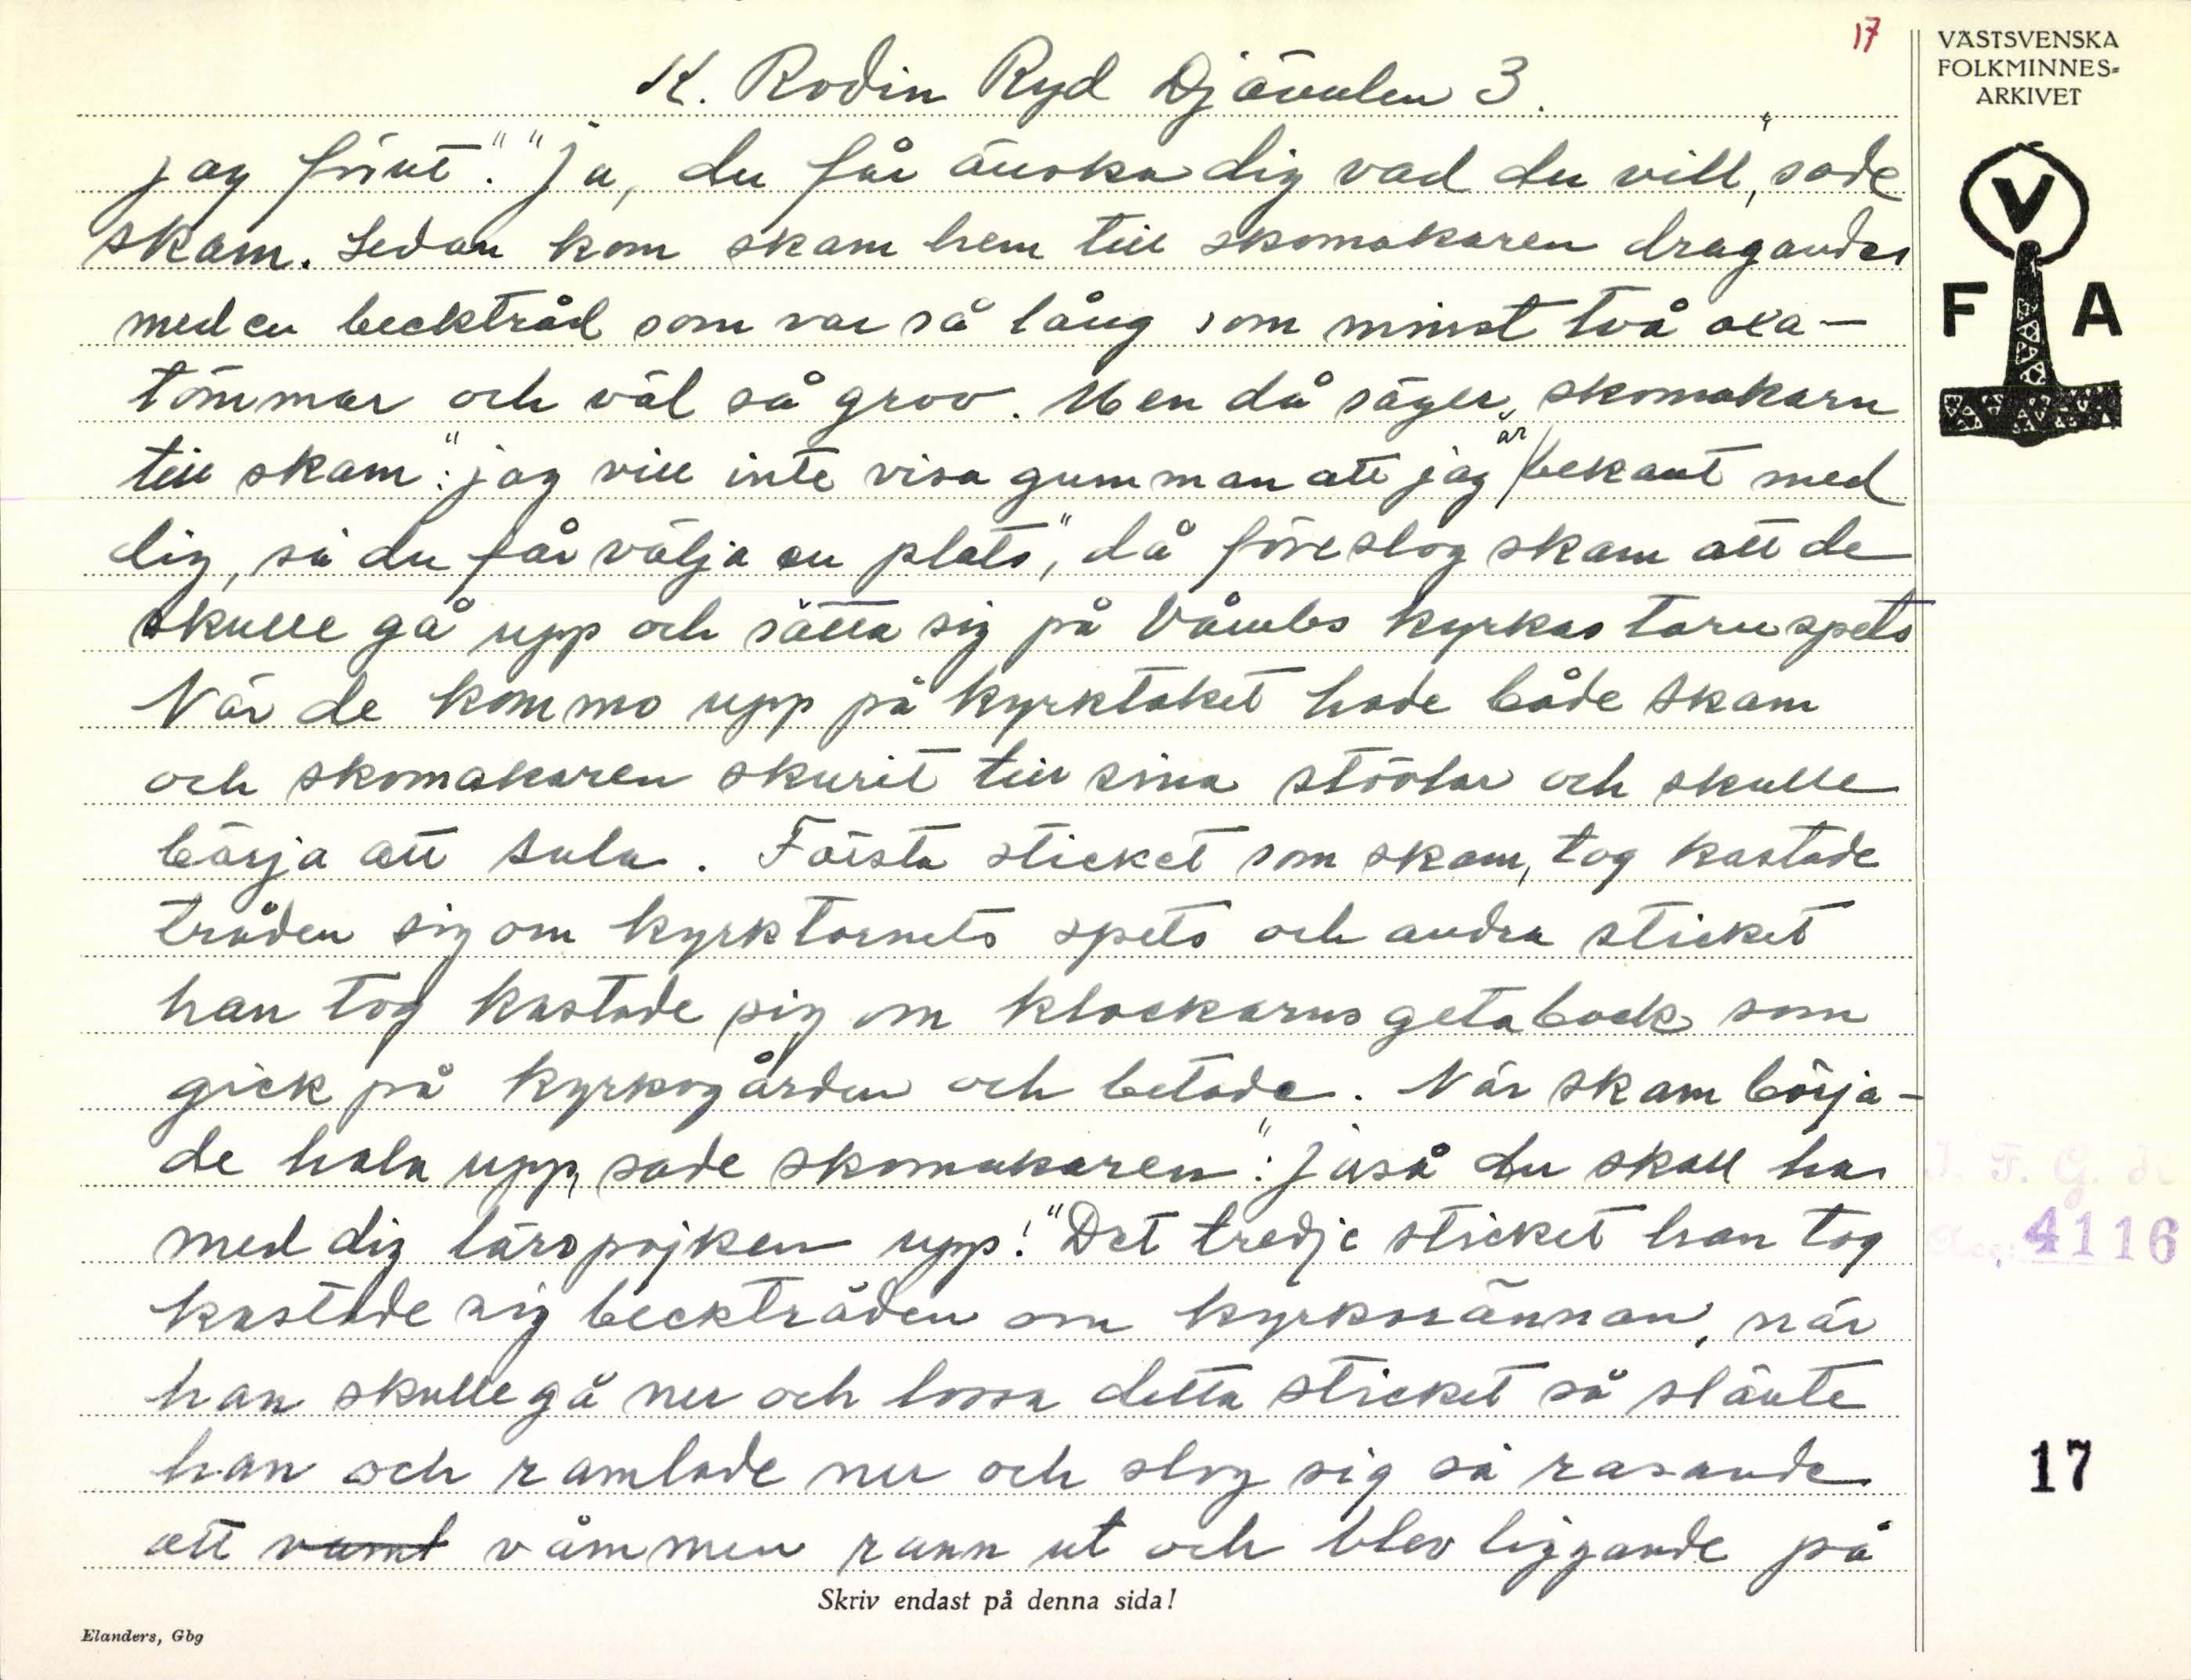 17
K. Rodin Ryd Djävulen 3.
jag först". "Ja, du får önska dig vad du vill", sade
skam. Sedan kom skam hem till skomakaren dragandes
med en becktråd som var så lång som minst två oxa-
tömmar och väl så grov. Men då säger skomakarn
till skam: "jag vill inte visa gumman att jag är bekant med
dig, så du får välja en plats", då föreslog skam att de
skulle gå upp och sätta sig på Våmbs kyrkas tornspets
När de kommo upp på kyrktaket hade både skam
och skomakaren skurit till sina stövlar och skulle
börja att sula. Första sticket som skam, tog kastade
tråden sig om kyrktornets spets och andra sticket
han tog kastade sig om klockarns getabock som
gick på kyrkogården och betade. När skam börja-
de hala upp, sade skomakaren: "jaså du skall ha
med dig läropojken upp!" Det tredje sticket han tog
kastade sig becktråden om kyrkorännan, när
han skulle gå ner och lossa detta sticket så slänte
han och ramlade ner och slog sig så rasande
att våmmen rann ut och blev liggande på
Skriv endast på denna sida!
Elanders, Gbg
VÄSTSVENSKA
FOLKMINNES-
ARKIVET
V
F A
4116
17